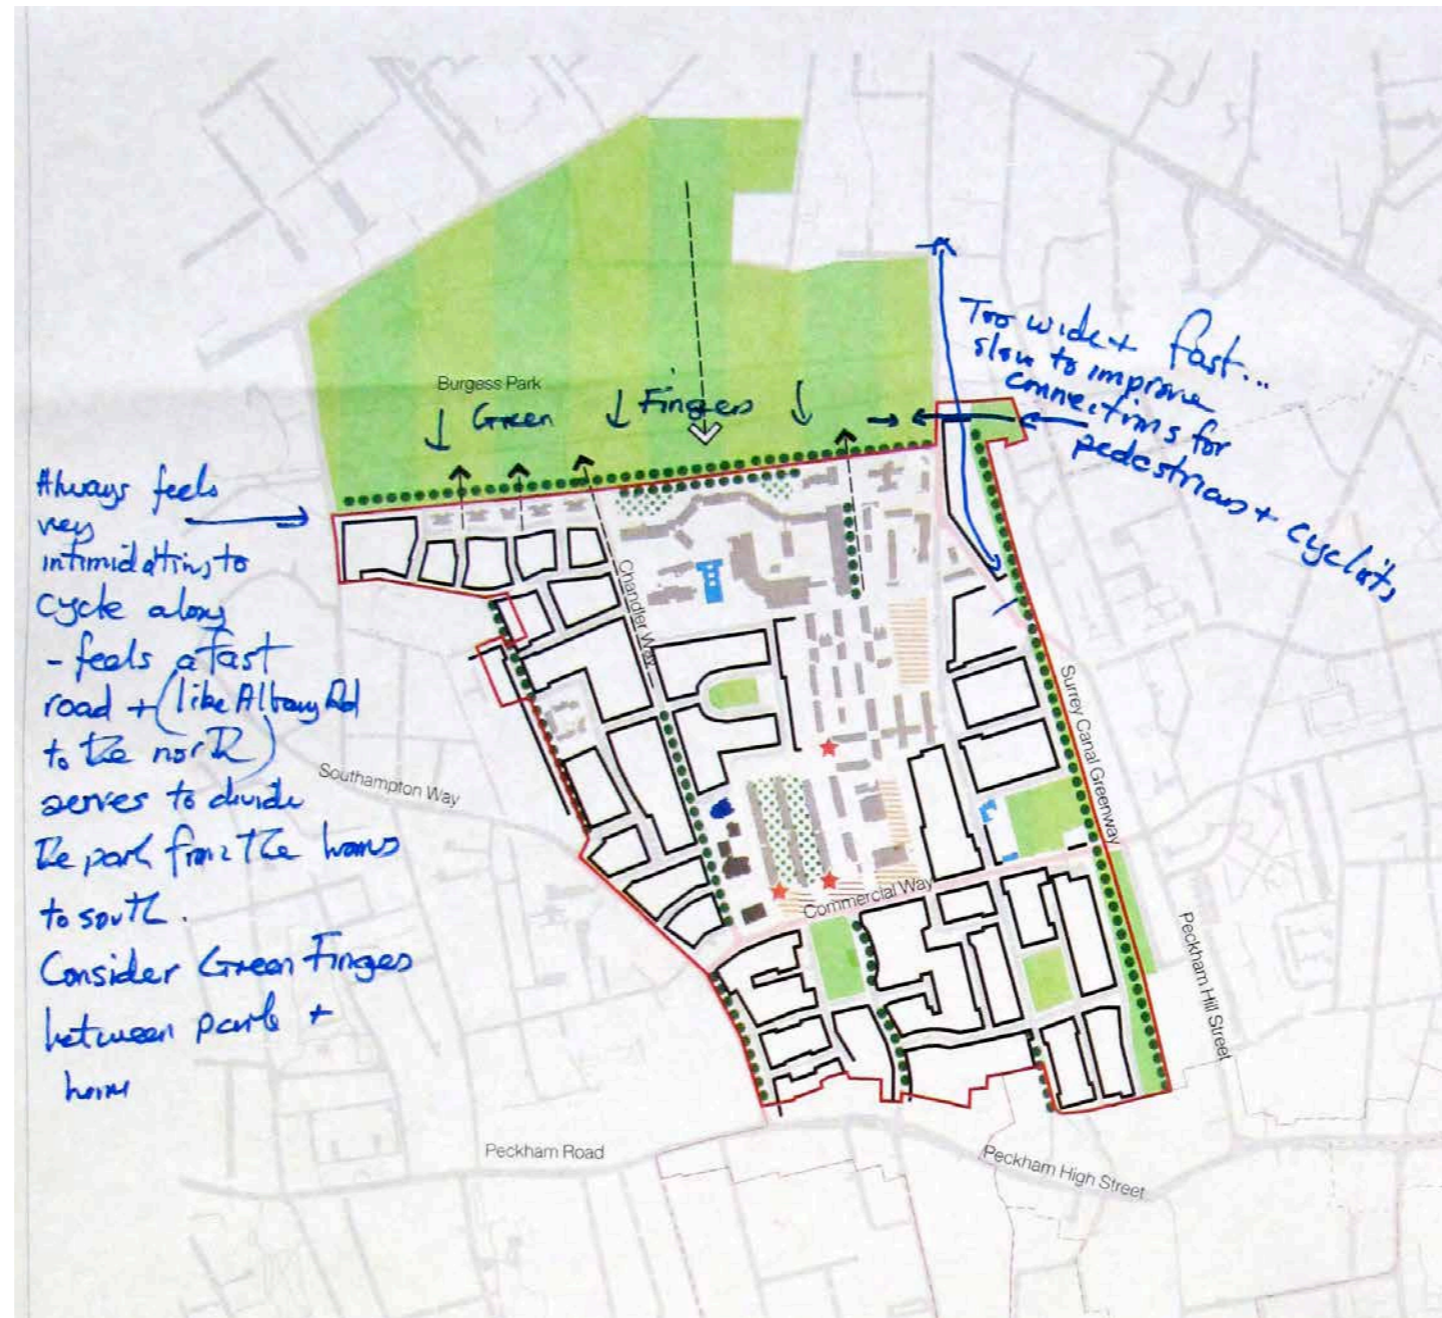 Burgess Park
Green Fingers
Too wide + fast...
slow to improve
connections for
pedestrians + cyclists
Always feels
very
intimidating to
cycle along
- feels a fast
road + (like Albany Rd
to the north)
serves to divide
the park from the homes
to south.
Consider Green Fingers
between park +
home
Chandler Way
Southampton Way
Surrey Canal Greenway
Commercial Way
Peckham Hill Street
Peckham Road
Peckham High Street